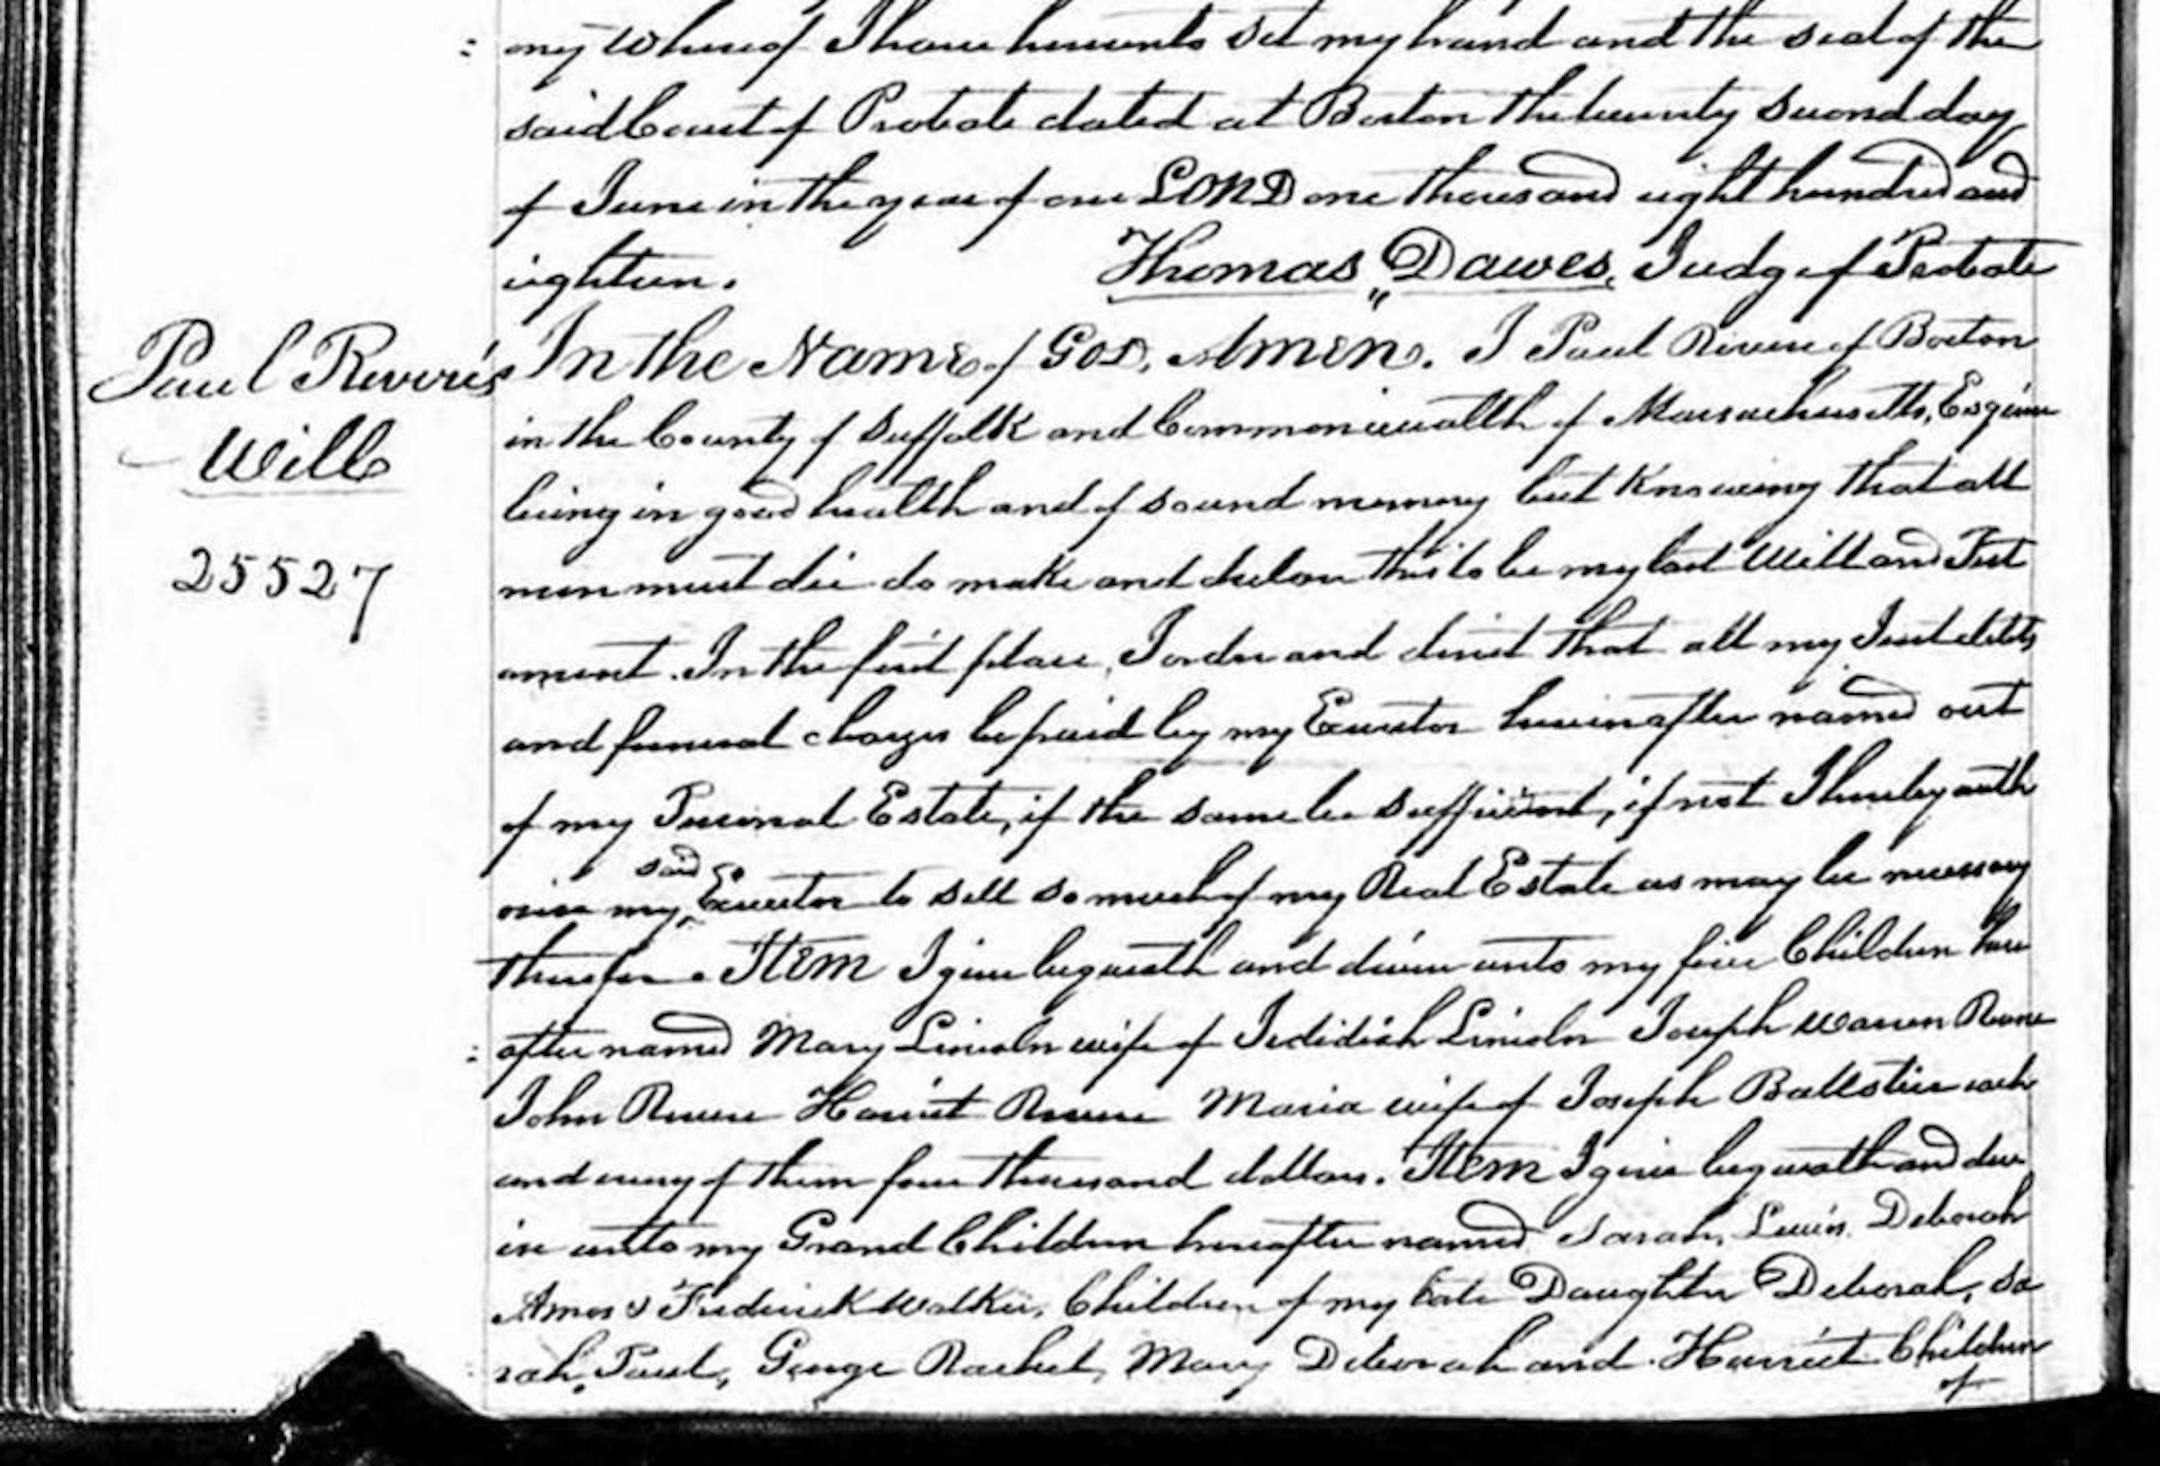 my whereof I have hereunto set my hand and the seal of the
said Court of Probate dated at Boston the twenty second day
of June in the year of our LORD one thousand eight hundred and
eighteen. Thomas Dawes, Judge of Probate
Paul Revere's
Will
25527
In the Name of God, Amen. I Paul Revere of Boston
in the County of Suffolk and Commonwealth of Massachusetts, Esquire
being in good health and of sound memory but knowing that all
men must die do make and declare this to be my last Will and Test
ament. In the first place, I order and direct that all my Just debts
and funeral charges be paid by my Executor hereinafter named out
of my Personal Estate, if the same be sufficient, if not I hereby auth
orise my said Executor to sell so much of my Real Estate as may be necessary
therefor. Item I give bequeath and devise unto my five Children here
after named Mary Lincoln wife of Jedidiah Lincoln Joseph Warren Revere
John Revere Harriet Revere Maria wife of Joseph Ballestier each
and every of them four thousand dollars. Item I give bequeath and dev
ise unto my Grand Children hereafter named Sarah, Lewis, Deborah
Amos & Frederick Walker, Children of my late Daughter Deborah, Sa
rah, Paul, George Rachel, Mary Deborah and Harriet Children
of